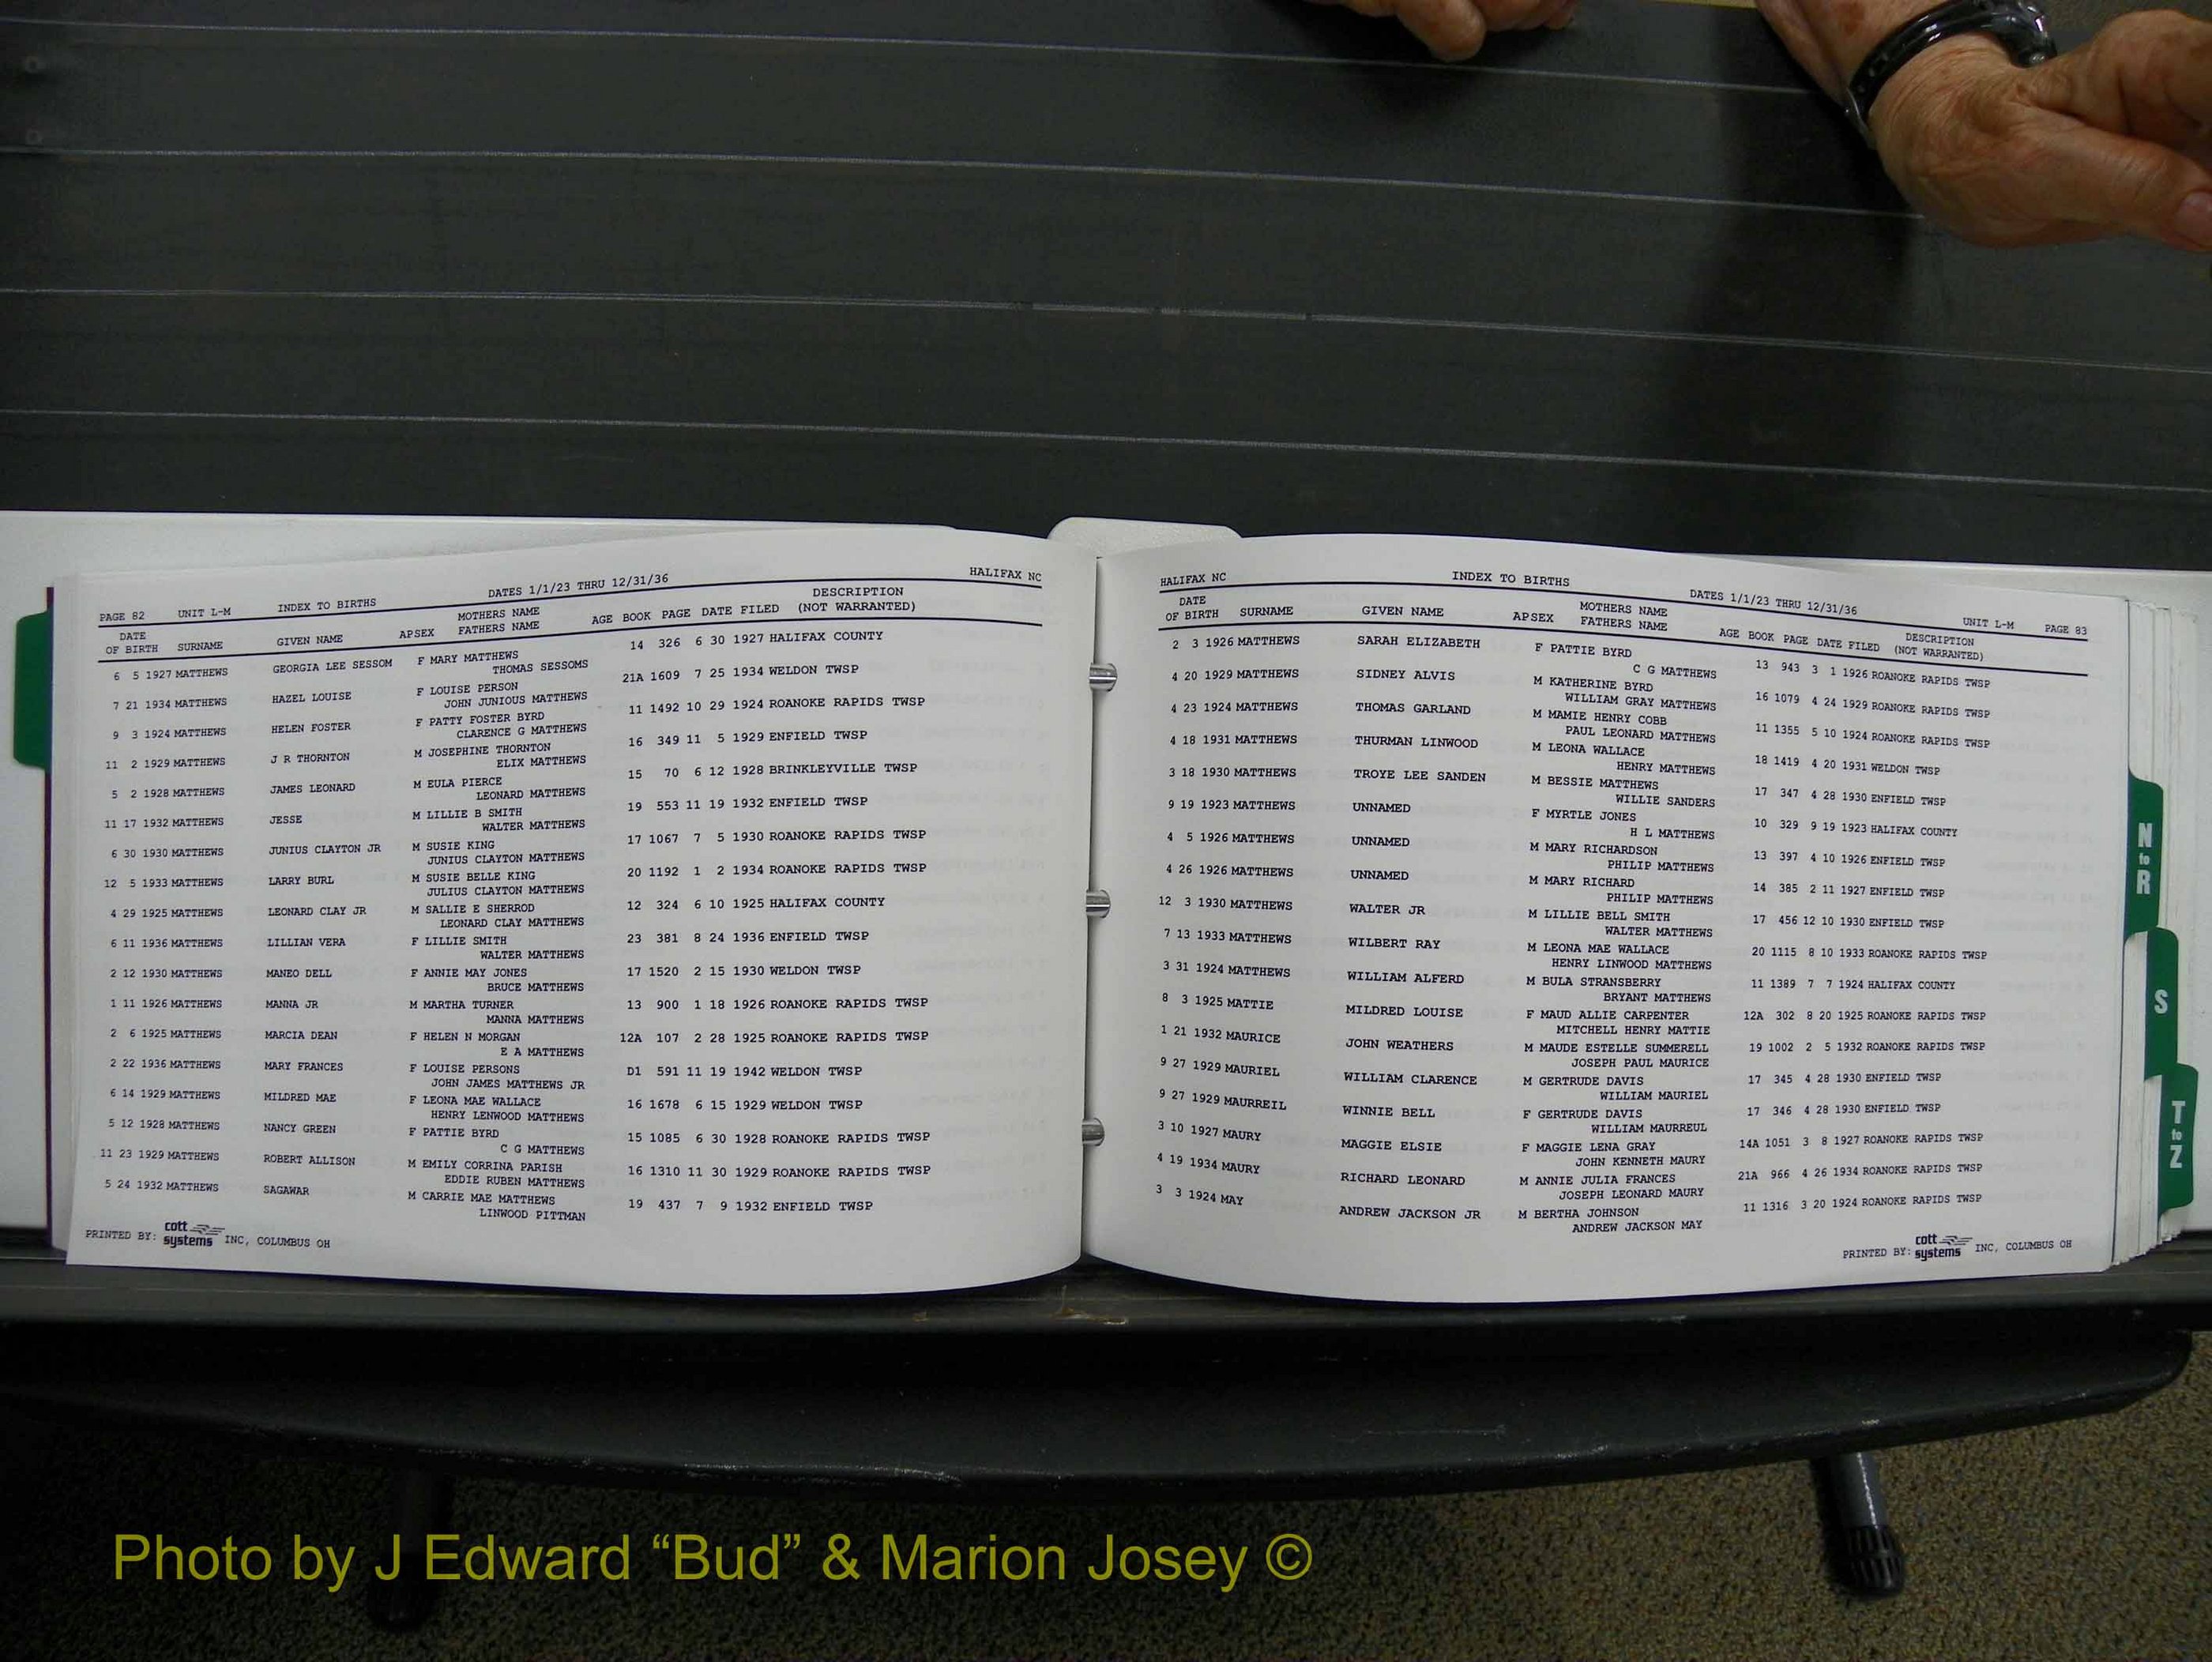 PAGE 82 UNIT L-M INDEX TO BIRTHS DATES 1/1/23 THRU 12/31/36 HALIFAX NC
DATE OF BIRTH SURNAME GIVEN NAME APSEX MOTHERS NAME FATHERS NAME AGE BOOK PAGE DATE FILED DESCRIPTION (NOT WARRANTED)
6 5 1927 MATTHEWS GEORGIA LEE SESSOM F MARY MATTHEWS 14 326 6 30 1927 HALIFAX COUNTY
THOMAS SESSOMS
7 21 1934 MATTHEWS HAZEL LOUISE F LOUISE PERSON 21A 1609 7 25 1934 WELDON TWSP
JOHN JUNIOUS MATTHEWS
9 3 1924 MATTHEWS HELEN FOSTER F PATTY FOSTER BYRD 11 1492 10 29 1924 ROANOKE RAPIDS TWSP
CLARENCE G MATTHEWS
11 2 1929 MATTHEWS J R THORNTON M JOSEPHINE THORNTON 16 349 11 5 1929 ENFIELD TWSP
ELIX MATTHEWS
5 2 1928 MATTHEWS JAMES LEONARD M EULA PIERCE 15 70 6 12 1928 BRINKLEYVILLE TWSP
LEONARD MATTHEWS
11 17 1932 MATTHEWS JESSE M LILLIE B SMITH 19 553 11 19 1932 ENFIELD TWSP
WALTER MATTHEWS
6 30 1930 MATTHEWS JUNIUS CLAYTON JR M SUSIE KING 17 1067 7 5 1930 ROANOKE RAPIDS TWSP
JUNIUS CLAYTON MATTHEWS
12 5 1933 MATTHEWS LARRY BURL M SUSIE BELLE KING 20 1192 1 2 1934 ROANOKE RAPIDS TWSP
JULIUS CLAYTON MATTHEWS
4 29 1925 MATTHEWS LEONARD CLAY JR M SALLIE E SHERROD 12 324 6 10 1925 HALIFAX COUNTY
LEONARD CLAY MATTHEWS
6 11 1936 MATTHEWS LILLIAN VERA F LILLIE SMITH 23 381 8 24 1936 ENFIELD TWSP
WALTER MATTHEWS
2 12 1930 MATTHEWS MANEO DELL F ANNIE MAY JONES 17 1520 2 15 1930 WELDON TWSP
BRUCE MATTHEWS
1 11 1926 MATTHEWS MANNA JR M MARTHA TURNER 13 900 1 18 1926 ROANOKE RAPIDS TWSP
MANNA MATTHEWS
2 6 1925 MATTHEWS MARCIA DEAN F HELEN N MORGAN 12A 107 2 28 1925 ROANOKE RAPIDS TWSP
E A MATTHEWS
2 22 1936 MATTHEWS MARY FRANCES F LOUISE PERSONS D1 591 11 19 1942 WELDON TWSP
JOHN JAMES MATTHEWS JR
6 14 1929 MATTHEWS MILDRED MAE F LEONA MAE WALLACE 16 1678 6 15 1929 WELDON TWSP
HENRY LENWOOD MATTHEWS
5 12 1928 MATTHEWS NANCY GREEN F PATTIE BYRD 15 1085 6 30 1928 ROANOKE RAPIDS TWSP
C G MATTHEWS
11 23 1929 MATTHEWS ROBERT ALLISON M EMILY CORRINA PARISH 16 1310 11 30 1929 ROANOKE RAPIDS TWSP
EDDIE RUBEN MATTHEWS
5 24 1932 MATTHEWS SAGAWAR M CARRIE MAE MATTHEWS 19 437 7 9 1932 ENFIELD TWSP
LINWOOD PITTMAN
PRINTED BY: cott systems INC, COLUMBUS OH
HALIFAX NC INDEX TO BIRTHS DATES 1/1/23 THRU 12/31/36 UNIT L-M PAGE 83
DATE OF BIRTH SURNAME GIVEN NAME APSEX MOTHERS NAME FATHERS NAME AGE BOOK PAGE DATE FILED DESCRIPTION (NOT WARRANTED)
2 3 1926 MATTHEWS SARAH ELIZABETH F PATTIE BYRD 13 943 3 1 1926 ROANOKE RAPIDS TWSP
C G MATTHEWS
4 20 1929 MATTHEWS SIDNEY ALVIS M KATHERINE BYRD 16 1079 4 24 1929 ROANOKE RAPIDS TWSP
WILLIAM GRAY MATTHEWS
4 23 1924 MATTHEWS THOMAS GARLAND M MAMIE HENRY COBB 11 1355 5 10 1924 ROANOKE RAPIDS TWSP
PAUL LEONARD MATTHEWS
4 18 1931 MATTHEWS THURMAN LINWOOD M LEONA WALLACE 18 1419 4 20 1931 WELDON TWSP
HENRY MATTHEWS
3 18 1930 MATTHEWS TROYE LEE SANDEN M BESSIE MATTHEWS 17 347 4 28 1930 ENFIELD TWSP
WILLIE SANDERS
9 19 1923 MATTHEWS UNNAMED F MYRTLE JONES 10 329 9 19 1923 HALIFAX COUNTY
H L MATTHEWS
4 5 1926 MATTHEWS UNNAMED M MARY RICHARDSON 13 397 4 10 1926 ENFIELD TWSP
PHILIP MATTHEWS
4 26 1926 MATTHEWS UNNAMED M MARY RICHARD 14 385 2 11 1927 ENFIELD TWSP
PHILIP MATTHEWS
12 3 1930 MATTHEWS WALTER JR M LILLIE BELL SMITH 17 456 12 10 1930 ENFIELD TWSP
WALTER MATTHEWS
7 13 1933 MATTHEWS WILBERT RAY M LEONA MAE WALLACE 20 1115 8 10 1933 ROANOKE RAPIDS TWSP
HENRY LINWOOD MATTHEWS
3 31 1924 MATTHEWS WILLIAM ALFERD M BULA STRANSBERRY 11 1389 7 7 1924 HALIFAX COUNTY
BRYANT MATTHEWS
8 3 1925 MATTIE MILDRED LOUISE F MAUD ALLIE CARPENTER 12A 302 8 20 1925 ROANOKE RAPIDS TWSP
MITCHELL HENRY MATTIE
1 21 1932 MAURICE JOHN WEATHERS M MAUDE ESTELLE SUMMERELL 19 1002 2 5 1932 ROANOKE RAPIDS TWSP
JOSEPH PAUL MAURICE
9 27 1929 MAURIEL WILLIAM CLARENCE M GERTRUDE DAVIS 17 345 4 28 1930 ENFIELD TWSP
WILLIAM MAURIEL
9 27 1929 MAURREIL WINNIE BELL F GERTRUDE DAVIS 17 346 4 28 1930 ENFIELD TWSP
WILLIAM MAURREUL
3 10 1927 MAURY MAGGIE ELSIE F MAGGIE LENA GRAY 14A 1051 3 8 1927 ROANOKE RAPIDS TWSP
JOHN KENNETH MAURY
4 19 1934 MAURY RICHARD LEONARD M ANNIE JULIA FRANCES 21A 966 4 26 1934 ROANOKE RAPIDS TWSP
JOSEPH LEONARD MAURY
3 3 1924 MAY ANDREW JACKSON JR M BERTHA JOHNSON 11 1316 3 20 1924 ROANOKE RAPIDS TWSP
ANDREW JACKSON MAY
PRINTED BY: cott systems INC, COLUMBUS OH
N to R
S
T to Z
Photo by J Edward “Bud” & Marion Josey ©